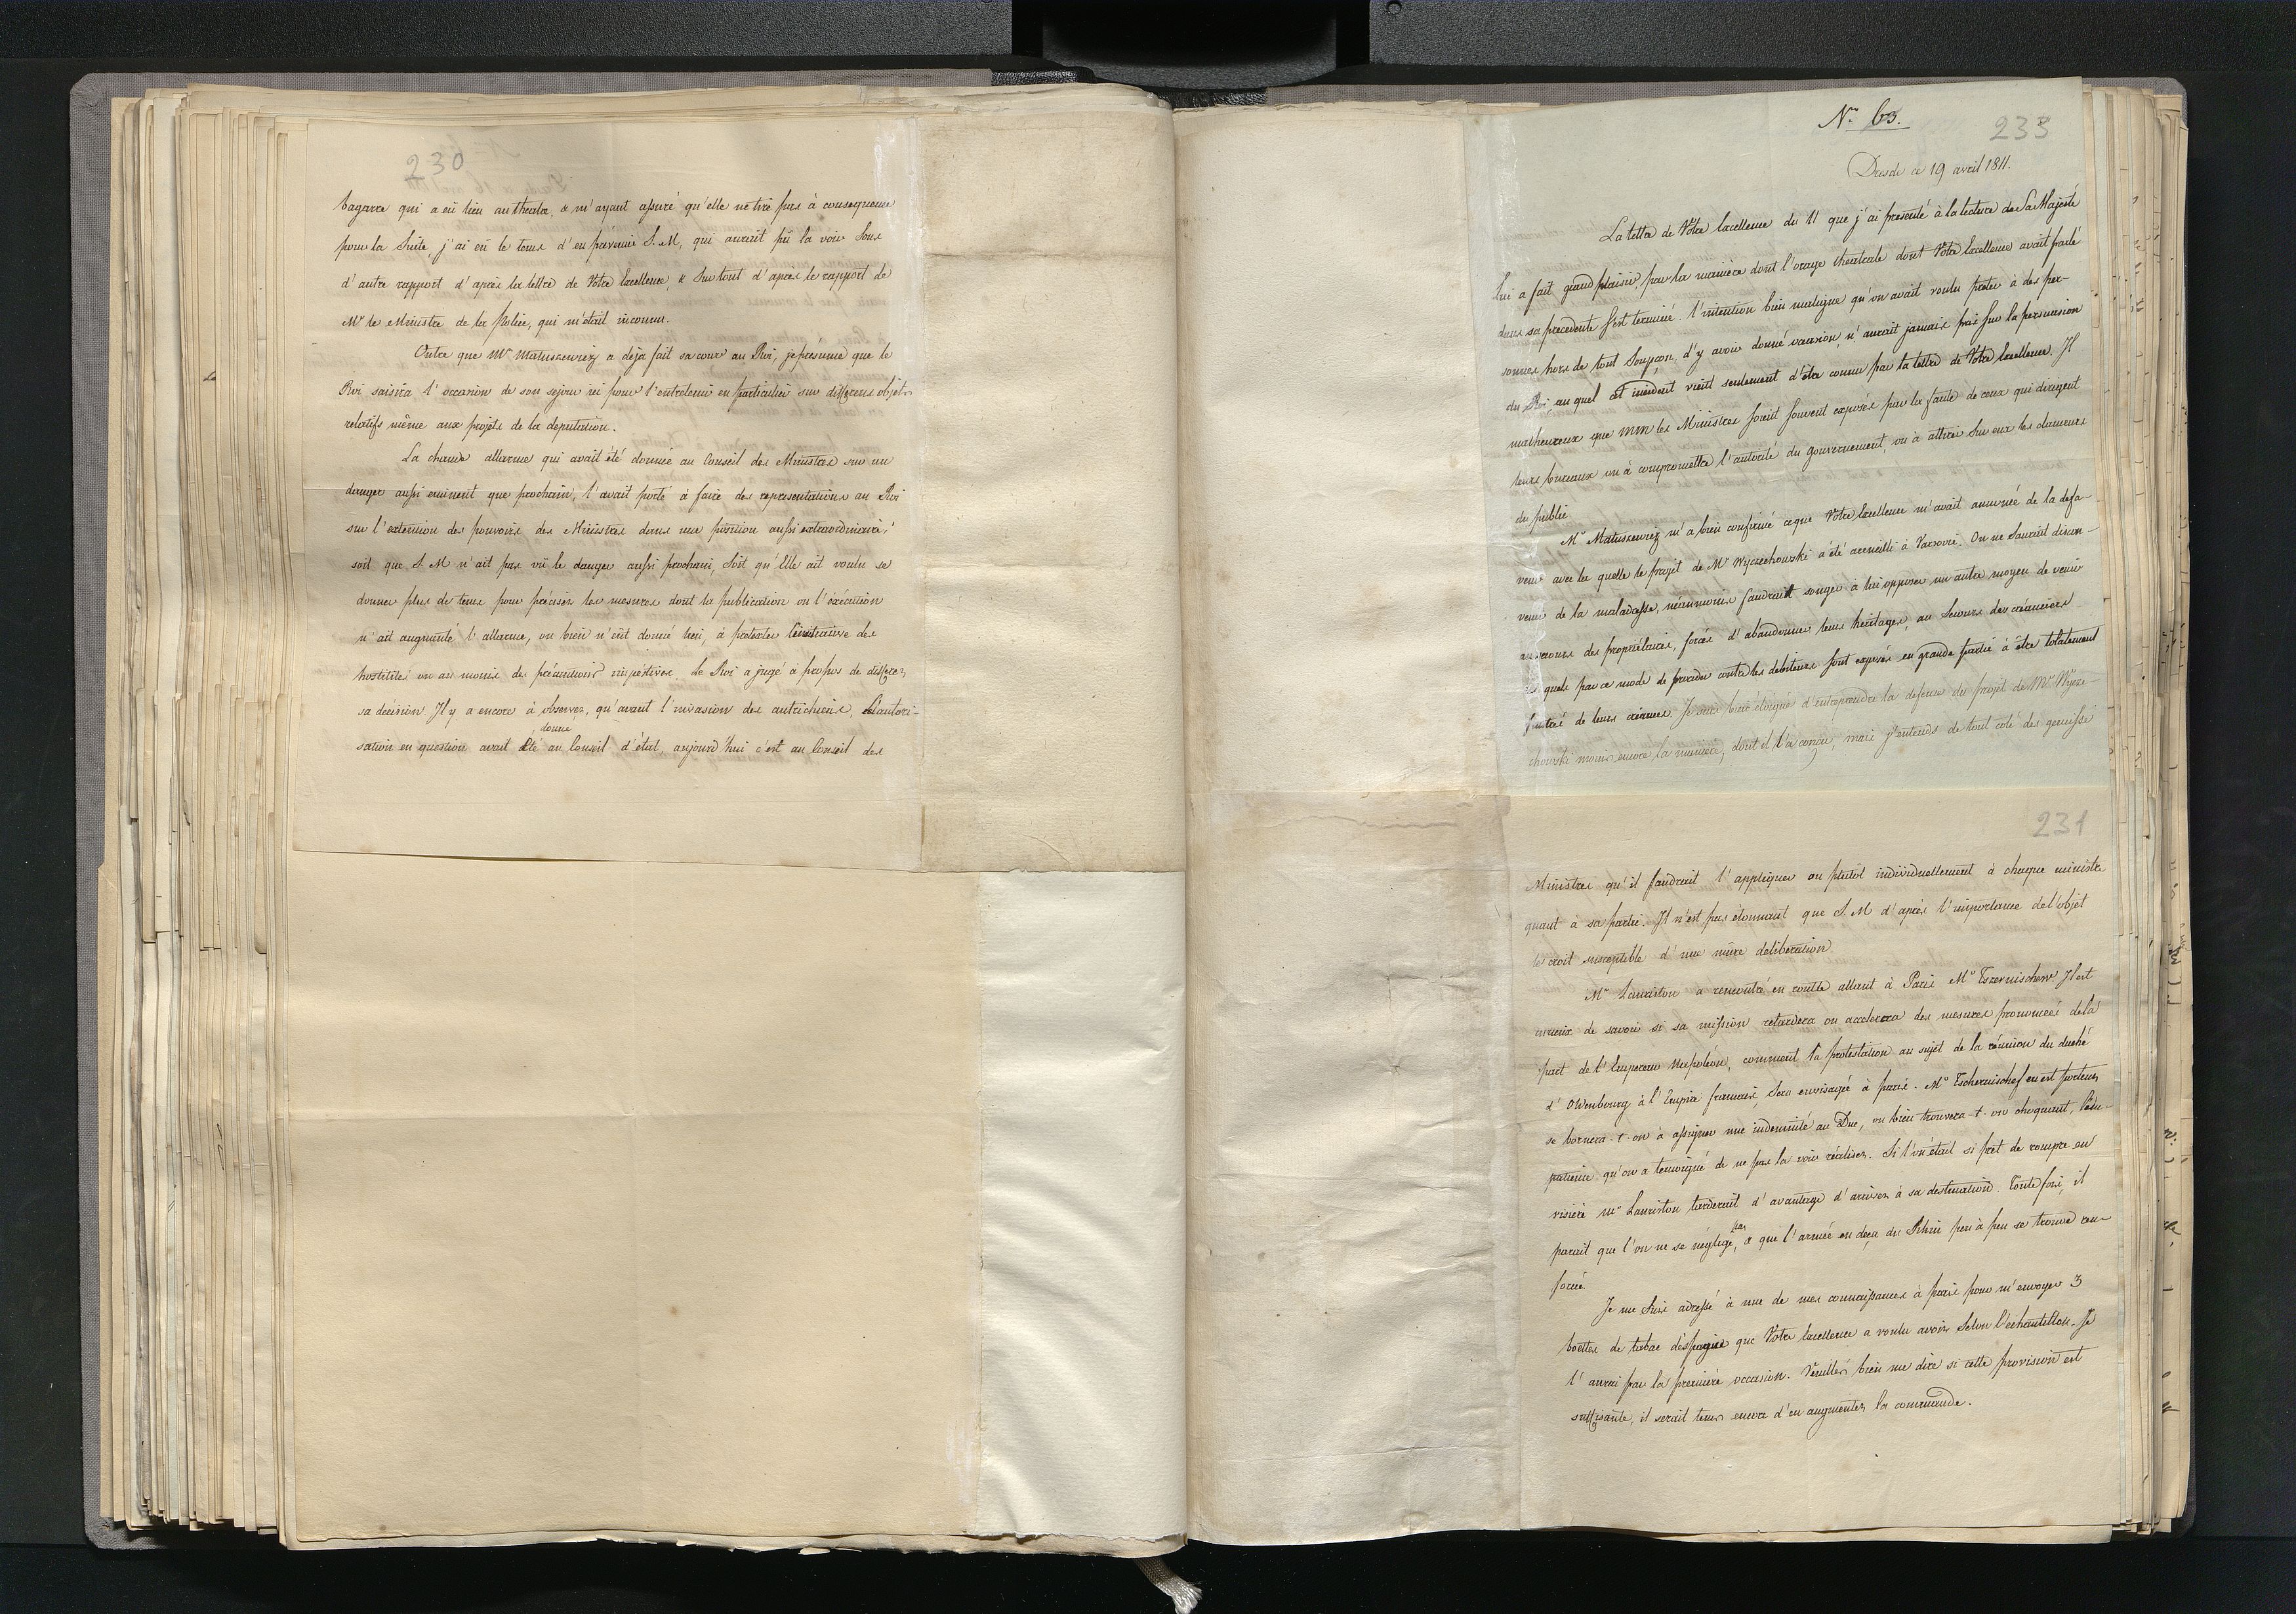 230
bagarre qui a eû lieu au theatre, & m'ayant assuré qu'elle ne tire pas à consequence
pour la Suite, j'ai eû le tems d'en prévenir S. M, qui aurait pû la voir sous
d'autre rapport d'après la lettre de Votre Excellence, & Surtout d'après le rapport de
Mr le Ministre de la Police, qui m'était inconnu.
Outre que Mr Matuszewicz a déja fait sa cour au Roi, je présume que le
Roi saisira l'occasion de son sejour ici pour l'entretenir en particulier sur differens objets
relatifs même aux projets de la deputation.
La chaude allarme qui avait été donnée au Conseil des Ministres sur un
danger aussi eminent que prochain, l'avait porté à faire des representations au Roi
sur l'extension des pouvoirs des Ministres dans une position aussi extraordinaire;
soit que S. M n'ait pas vû le danger aussi prochain, Soit qu'Elle ait voulu se
donner plus de tems pour préciser les mesures dont la publication ou l'exécution
n'ait augmenté l'allarme, ou bien n'eût donné lieu, à pretexter l'initiative des
hostilités ou au moins des précautions respectives. Le Roi a jugé à propos de differer
sa decision. Il y a encore à observer, qu'avant l'invasion des autrichiens, l'autori-
donnée
sation en question avait été au Conseil d'état, aujourd'hui c'est au Conseil des
Nro 63.
233
Dresde ce 19 avril 1811.
La lettre de Votre Excellence du 11 que j'ai presenté à la lecture de Sa Majesté
lui a fait grand plaisir par la manière dont l'orage théatrale dont Votre Excellence avait parlé
dans sa precedente s'est terminé. L'intention bien maligne qu'on avait voulu preter à des per-
sonnes hors de tout Soupçon, d'y avoir donné occasion, n'aurait jamais pris sur la persuasion
du Roi, au quel cet incident vient seulement d'être connu par la lettre de Votre Excellence. Il
malheureux que MM les Ministres soient souvent exposés par la faute de ceux qui dirigent
leurs bureaux ou à compromettre l'autorité du gouvernement, ou à attirer sur eux les clameurs
du public.
Mr Matuszewicz m'a bien confirmé ce que Votre Excellence m'avait annoncé de la defa-
veur avec la quelle le projet de Mr Wyczechowski a été accueilli à Varsovie. On ne Saurait discon-
venir de la maladresse, néanmoins faudrait songer à lui opposer un autre moyen de venir
au secours des propriétaires, forcés d'abandonner leurs heritages, au Secours des créanciers
quels par ce mode de proceder contre les debiteurs sont exposés en grande partie à être totalement
frustré de leurs créances. Je suis bien éloigné d'entreprendre la defense du projet de Mr Wycze-
chowski moins encore la manière, dont il l'a conçu, mais j'entends de tout coté des gemisse
231
Ministres qu'il faudrait l'appliquer ou plutôt individuellement à chaque ministre
quant à sa partie. Il n'est pas étonnant que S. M d'après l'importance de l'objet
les croit susceptible d'une mûre deliberation.
Mr Lauriston a rencontré en routte allant à Paris Mr Tszernischew. Il est
curieux de savoir si sa mission retardera ou accelerera des mesures prononcées de la
part de l'Empereur Napoléon, comment la protestation au sujet de la réunion du duché
d'Oldenbourg à l'Empire francais, Sera envisagée à paris. Mr Tschernischef en est porteur,
se bornera-t-on à assigner une indemnité au Duc, ou bien trouvera-t-on choquant, l'im-
patience qu'on a temoigné de ne pas la voir réaliser. Si l'on était si prêt de rompre en
visière mr Lauriston tarderait d'avantage d'arriver à sa destination. Toute fois, il
pas
parait que l'on ne se néglige, & que l'armée en deça du Rhin peu à peu se trouve ren-
forcée.
Je me suis adressé à une de mes connaissances à paris pour m'envoyer 3
boëttes de tabac d'espagne que Votre Excellence a voulu avoir selon l'échantillon. Je
l'aurai par la première occasion. Veuillés bien me dire si cette provision est
suffisante, il serait tems encore d'en augmenter la commande.